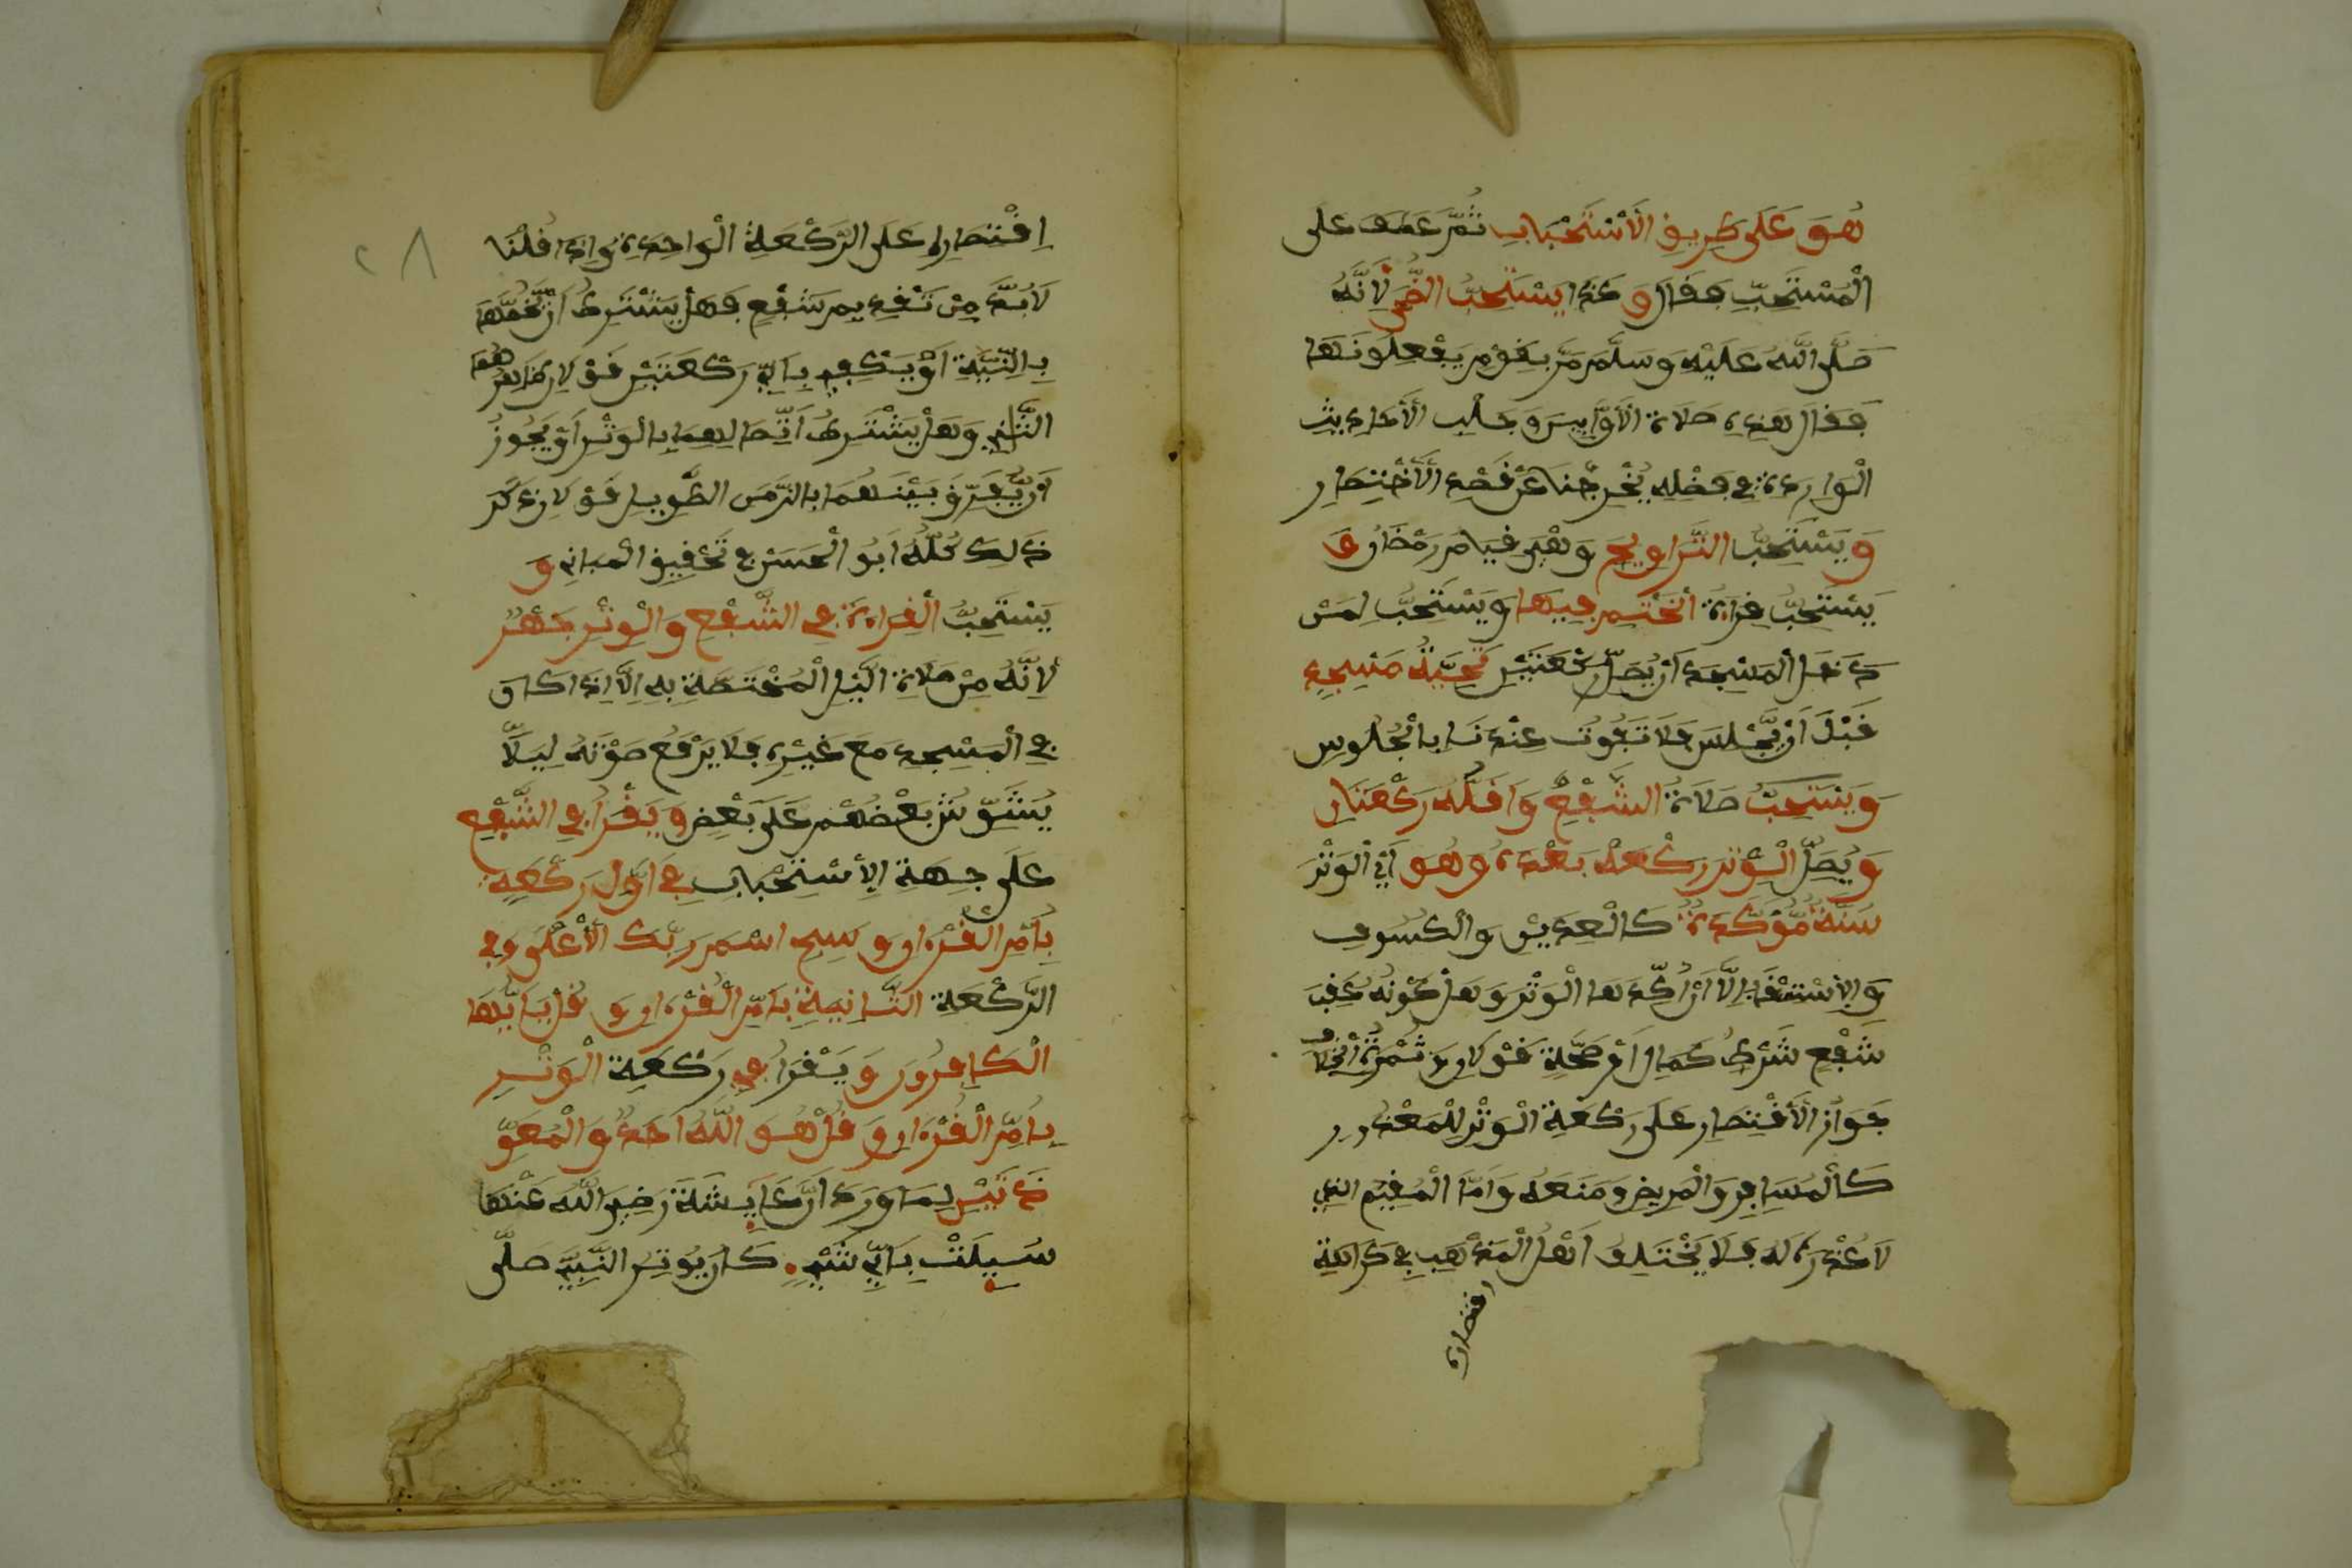 هُوَ عَلَى طَرِيقِ الْأِسْتِحْبَابِ ثُمَّ عَطَفَ عَلَى
الْمُسْتَحَبِّ فَقَالَ وَكَذَا يَسْتَحِبُّ الضُّحَى لِأَنَّهُ
صَلَّى اللَّهُ عَلَيْهِ وَسَلَّمَ مَرَّ بِقَوْمٍ يَفْعَلُونَهَا
فَقَالَ هَذِهِ صَلَاةُ الْأَوَّابِينَ وَجَلْبُ الْأَحَادِيثِ
الْوَارِدَةِ فِي فَضْلِهِ يُخْرِجُنَا عَنْ قَصْدِ الْأِخْتِصَارِ
وَيَسْتَحِبُّ التَّرَاوِيحُ وَهِيَ قِيَامُ رَمَضَانَ وَ
يَسْتَحِبُّ قِرَاءَةُ الْخَتْمِ فِيهَا وَيَسْتَحِبُّ لِمَنْ
دَخَلَ الْمَسْجِدَ أَنْ يُصَلِّيَ رَكْعَتَيْنِ تَحِيَّةُ مَسْجِدٍ
قَبْلَ أَنْ يَّجْلِسَ فَلَا تَفُوتُ عِنْدَنَا بِالْجُلُوسِ
وَيَسْتَحِبُّ صَلَاةُ الشَّفْعِ وَأَقَلُّهُ رَكْعَتَانِ
وَيُصَلِّ الْوِتْرَ رَكْعَةً بَعْدَهُ وَهُوَ أَيِ الْوَتْرُ
سُنَّةٌ مُّؤَكَّدَةٌ كَالْعِيدَيْنِ وَالْكُسُوفِ
وَالِاسْتِسْقَاءِ إِلَّا أَنَّ آكَدَهَا الْوَتْرُ وَهَلْ كَوْنُهُ عَقِبَ
شَفْعٍ شَرْطُ كَمَالٍ أَوْ صِحَّةٍ قَوْلَانِ وَثَمْرَةُ الْخِلَافِ
جَوَازُ الْأِقْتِصَارِ عَلَى رَكْعَةِ الْوَتْرِ لِلْمَعْذُورِ
كَالْمُسَافِرِ وَالْمَرِيضِ وَمَنَعَهُ وَأَمَّا الْمُقِيمُ الذِي
لَا عُذْرَ لَهُ فَلَا يَخْتَلِفُ أَهْلُ الْمَذْهَبِ فِي كَرَاهَةِ
اقتصاره
٢٨
اِقْتِصَارِهِ عَلَى الرَّكْعَةِ الْوَاحِدَةِ وَإِذَا قُلْنَا
لَا بُدَّ مِنْ تَقْدِيمِ شَفْعٍ فَهَلْ يَشْتَرِطُ أَنْ يَّخُصَّهَا
بِالنِّيَّةِ أَوْ يَكْفِي بِأَيِّ رَكْعَتَيْنِ قَوْلَانِ
وَهَلْ يَشْتَرِطُ اتِّصَالُهُمَا بِالْوَتْرِ أَوْ يَجُوزُ
أَنْ يُّفَرِّقَ بَيْنَهُمَا بِالزَّمَنِ الطَّوِيلِ قَوْلَانِ ذَكَرَ
ذَلِكَ كُلَّهُ أَبُو الْحَسَنِ فِي تَحْقِيقِ الْمَبَانِي وَ
يَسْتَحِبُّ الْقِرَاءَةُ فِي الشَّفْعِ وَالْوِتْرِ جَهْرًا
لِأَنَّهُ مِنْ صَلَاةِ الَّيْلِ الْمُخْتَصَّةِ بِهِ إِلَّا إِذَا كَانَ
فِي الْمَسْجِدِ مَعَ غَيْرِهِ فَلَا يَرْفَعُ صَوْتَهُ لِيَلَّا
يُشَوِّشَ بَعْضُهُمْ عَلَى بَعْضٍ وَيَقْرَأُ فِي الشَّفْعِ
عَلَى جِهَةِ الِأسْتِحْبَابِ فِي أَوَّلِ رَكْعَةٍ
بِأُمِّ الْقُرْءَانِ وَسَبِّحِ اسْمَ رَبِّكَ الْأَعْلَى وَفِي
الرَّكْعَةِ الثَّانِيَةِ بِأُمِّ الْقُرْءَانِ وَقُلْ يَا أَيُّهَا
الْكَافِرُونَ وَيَقْرَأُ فِي رَكْعَةِ الْوَتْرِ
بِأُمِّ الْقُرْءَانِ وَقُلْ هُوَ اللَّهُ أَحَدٌ وَالْمُعَوِّ
ذَتَيْنِ لِمَا وَرَدَ أَنَّ عَايِشَةَ رَضِيَ اللَّهُ عَنْهَا
سُيِلَتْ بِأَيِّ شَيْءٍ كَانَ يُوتِرُ النَّبِيُّ صَلَّى